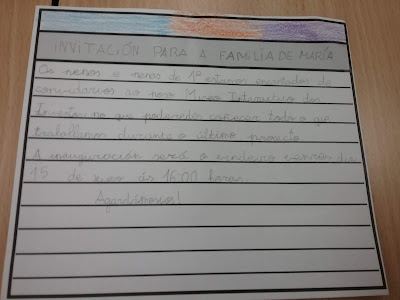 INVITACIÓN PARA A FAMILIA DE MARÍA
Os nenos e nenas de 1º estamos encantados de
convidarvos ao noso Museo Interactivo dos
Inventos no que poderedes coñecer todo o que
traballamos durante o último proxecto.
A inauguración será o vindeiro venres día
15 de xuño ás 16:00 horas.
Agardámosvos!